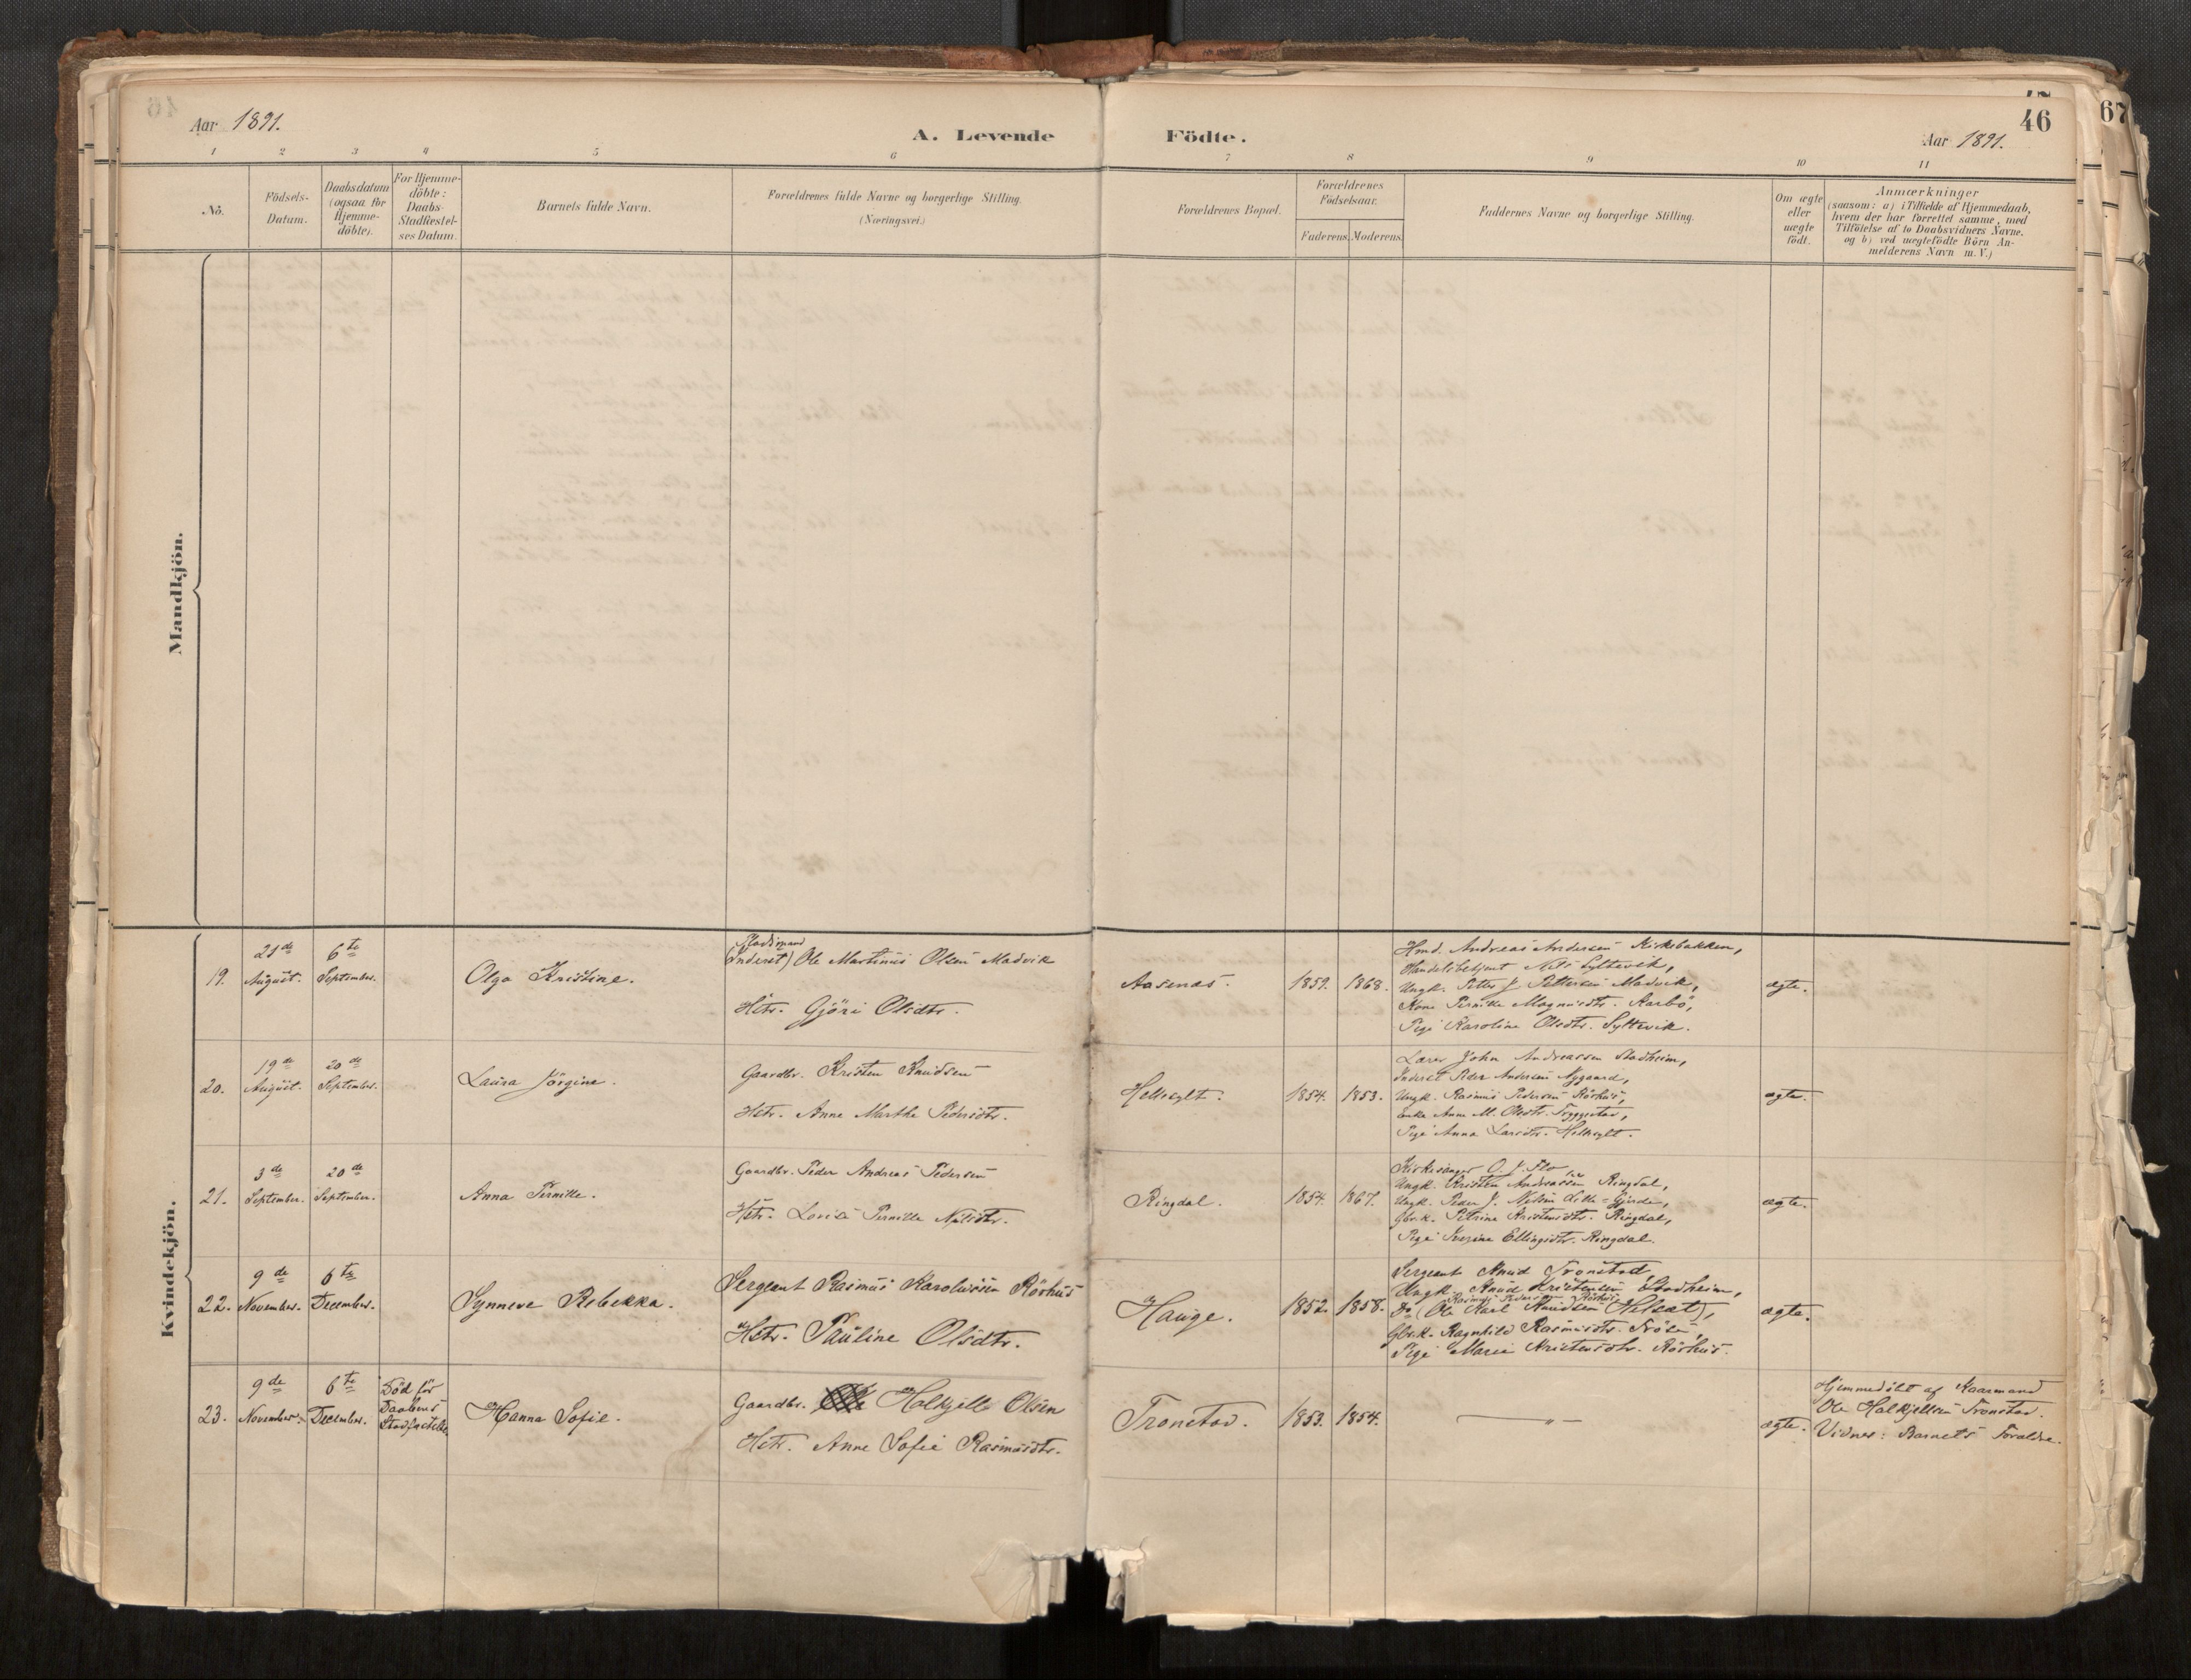 46
67
Aar 1891.
A. Levende Födte.
Aar 1891.
1 2 3 4 5 6 7 8 9 10 11
No.
Födsels-
Datum.
Daabsdatum
(ogsaa for
Hjemme-
döbte).
For Hjemme-
döbte:
Daabs-
Stadfæstel-
ses Datum.
Barnets fulde Navn.
Forældrenes fulde Navne og borgerlige Stilling.
(Næringsvei.)
Forældrenes Bopæl.
Forældrenes
Födselsaar.
Faderens. Moderens.
Faddernes Navne og borgerlige Stilling.
Om ægte
eller
uægte
födt.
Anmærkninger
(saasom: a) i Tilfælde af Hjemmedaab,
hvem der har forrettet samme, med
Tilföielse af to Daabsvidners Navne.
og b) ved uægtefödte Börn An-
melderens Navn m. V.)
Mandkjön.
Kvindekjön.
19.
21de
August.
6te
September.
Olga Kristine.
Pladsmand
(Inderst) Ole Martinus Olsen Madvik
Hstr. Gjöri Olsdtr.
Aasenæs.
1859. 1868.
Hmd. Andreas Andersen Kirkebakken,
Handelsbetjent Nils Syltevik,
Ungk. Petter J. Pettersen Madvik,
Kone Pernille Magnusdtr. Aarbö,
Pige Karoline Olsdtr. Syltevik.
ægte.
20.
19de
August.
20de
September.
Laura Jörgine.
Gaardbr. Kristen Knudsen
Hstr. Anne Marthe Pedersdtr.
Hellesylt.
1854. 1853.
Lærer John Andreassen Stadheim,
Inderst Peder Andersen Nygaard,
Ungk. Rasmus Pedersen Rörhus,
Enke Anne M. Olsdtr. Tryggestad,
Pige Anna Larsdtr. Hellesylt.
ægte.
21.
3de
September.
20de
September.
Anna Pernille.
Gaardbr. Peder Andreas Pedersen
Hstr. Lovise Pernille Nilsdtr.
Ringdal.
1854. 1867.
Kirkesanger O. J. Flo,
Ungk. Kristen Andreassen Ringdal,
Ungk. Peder J. Nilsen Lille-Gjerde,
Gbr.k. Petrine Kristensdtr. Ringdal,
Pige Iverine Ellingsdtr. Ringdal.
ægte.
22.
9de
November.
6te
December.
Synneve Rebekka.
Sergeant Rasmus Karolussen Rörhus
Hstr. Pauline Olsdtr.
Hauge.
1852. 1858.
Sergeant Knud Tronstad,
Ungk. Knud Kristensen Stadheim,
Rasmus Pedersen Rörhus
Do (Ole Karl Knudsen Helsat),
Gbr.k. Ragnhild Rasmusdtr. Tröen,
Pige Marie Kristensdtr. Rörhus.
ægte.
23.
9de
November.
6te
December.
Död för
Daabens
Stadfæstelse.
Hanna Sofie.
Gaardbr. Ole Halkjelle Olsen
Hstr. Anne Sofie Rasmusdtr.
Tronstad.
1853. 1854.
— " —
ægte.
Hjemmedöbt af Kaarmand
Ole Halkjellsen Tronstad.
Vidner: Barnets Forældre.